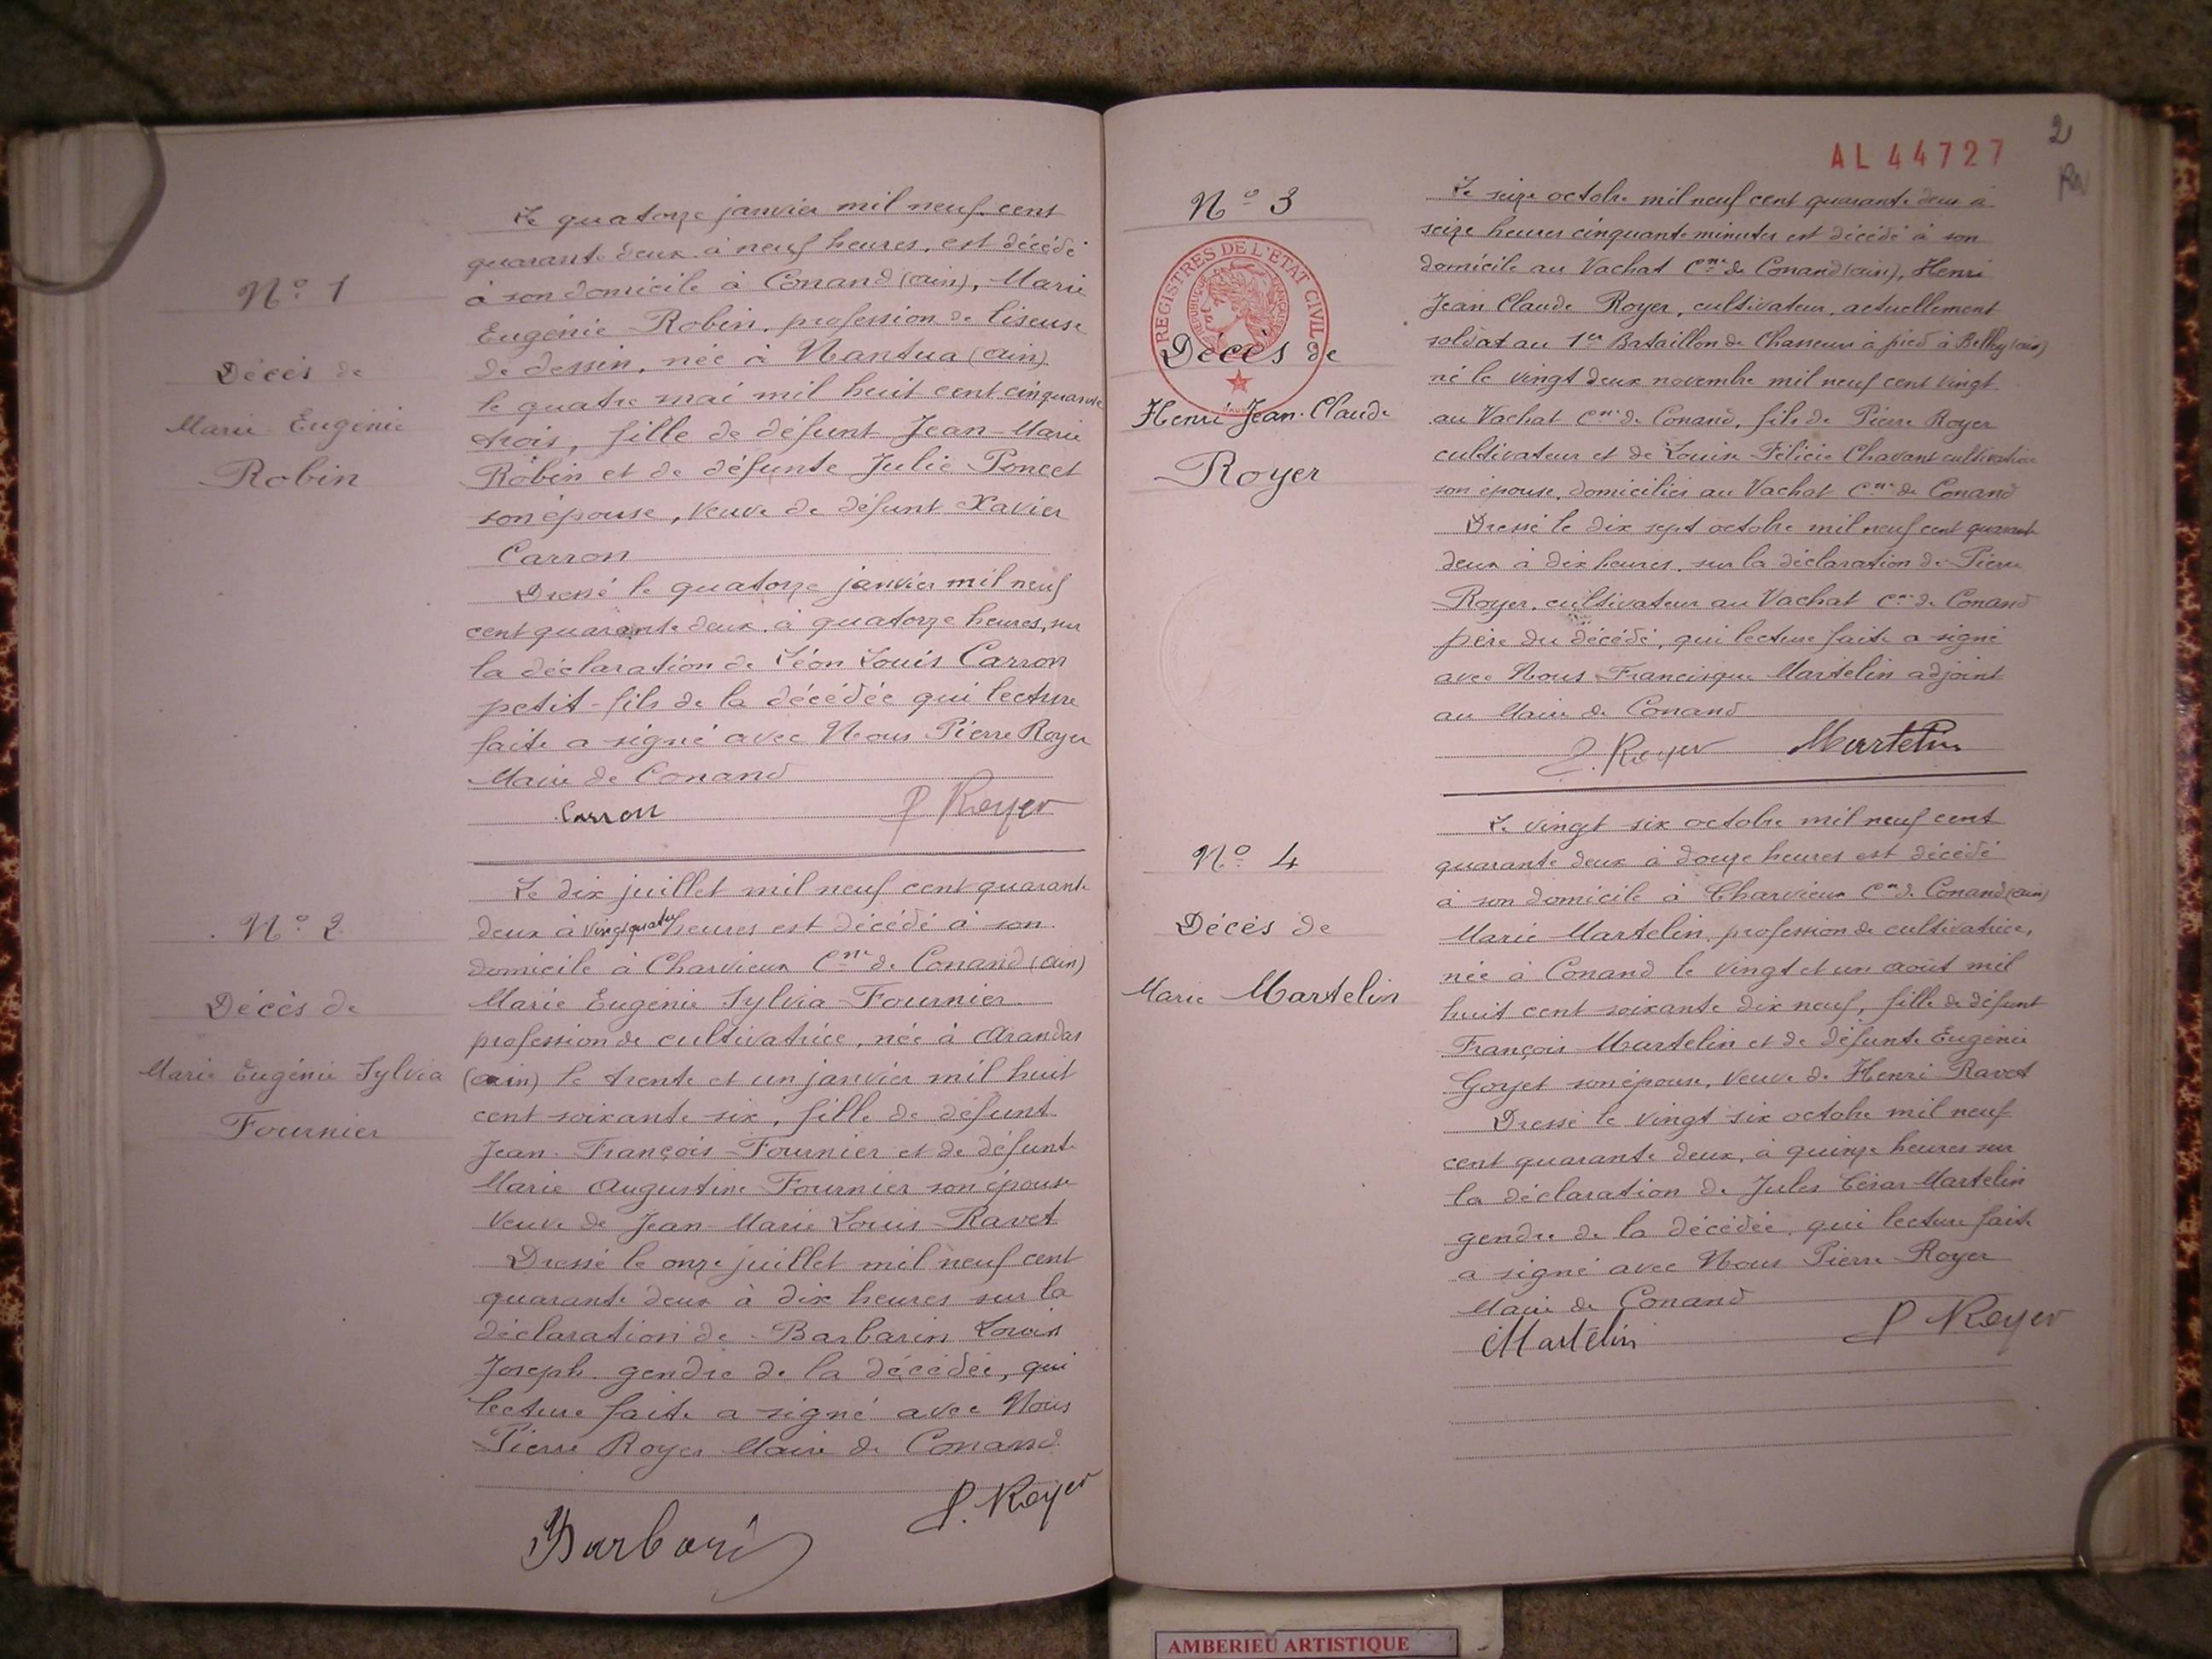 N° 1
Décès de
Marie Eugénie
Robin
Le quatorze janvier mil neuf cent
quarante deux à neuf heures, est décédé
à son domicile à Conand (ain), Marie
Eugénie Robin, profession de liseuse
de dessin, née à Nantua (ain)
le quatre mai mil huit cent cinquante
trois, fille de défunt Jean-Marie
Robin et de défunte Julie Poncet
son épouse, veuve de défunt Xavier
Carron
Dressé le quatorze janvier mil neuf
cent quarante deux, à quatorze heures, sur
la déclaration de Léon Louis Carron
petit-fils de la décédée qui lecture
faite a signé avec Nous Pierre Royer
Maire de Conand
Carron P Royer
N° 2
Décès de
Marie Eugénie Sylvia
Fournier
Le dix juillet mil neuf cent quarante
deux à vingt quatre heures est décédé à son
domicile à Charvieux Cne de Conand (ain)
Marie Eugénie Sylvia Fournier
profession de cultivatrice, née à Arandas
(ain) le trente et un janvier mil huit
cent soixante six, fille de défunt
Jean-François Fournier et de défunte
Marie Augustine Fournier son épouse
veuve de Jean-Marie Louis Ravet
Dressé le onze juillet mil neuf cent
quarante deux à dix heures sur la
déclaration de Barbarin Louis
Joseph gendre de la décédée, qui
lecture faite a signé avec Nous
Pierre Royer Maire de Conand
Barbarin P. Royer
2
AL 44727
N° 3
REGISTRES DE L'ETAT CIVIL
REPUBLIQUE FRANCAISE
Décès de
Henri Jean-Claude
Royer
Le seize octobre mil neuf cent quarante deux à
seize heures cinquante minutes est décédé à son
domicile au Vachat Cne de Conand (ain), Henri
Jean Claude Royer, cultivateur, actuellement
soldat au 1er Bataillon de Chasseurs à pied à Belley (ain)
né le vingt deux novembre mil neuf cent vingt
au Vachat Cne de Conand, fils de Pierre Royer
cultivateur et de Louise Félicie Chavant cultivatrice
son épouse, domiciliés au Vachat Cne de Conand
Dressé le dix sept octobre mil neuf cent quarante
deux à dix heures, sur la déclaration de Pierre
Royer, cultivateur au Vachat Cne de Conand
père du décédé, qui lecture faite a signé
avec Nous Francisque Martelin adjoint
au Maire de Conand
P. Royer Martelin
N° 4
Décès de
Marie Martelin
Le vingt six octobre mil neuf cent
quarante deux à douze heures est décédé
à son domicile à Charvieux Cne de Conand (ain)
Marie Martelin, profession de cultivatrice,
née à Conand le vingt et un août mil
huit cent soixante dix neuf, fille de défunt
François Martelin et de défunte Eugénie
Goyet son épouse, veuve de Henri Ravet
Dressé le vingt six octobre mil neuf
cent quarante deux, à quinze heures sur
la déclaration de Jules César Martelin
gendre de la décédée, qui lecture faite
a signé avec Nous Pierre Royer
Maire de Conand
Martelin P Royer
AMBERIEU ARTISTIQUE